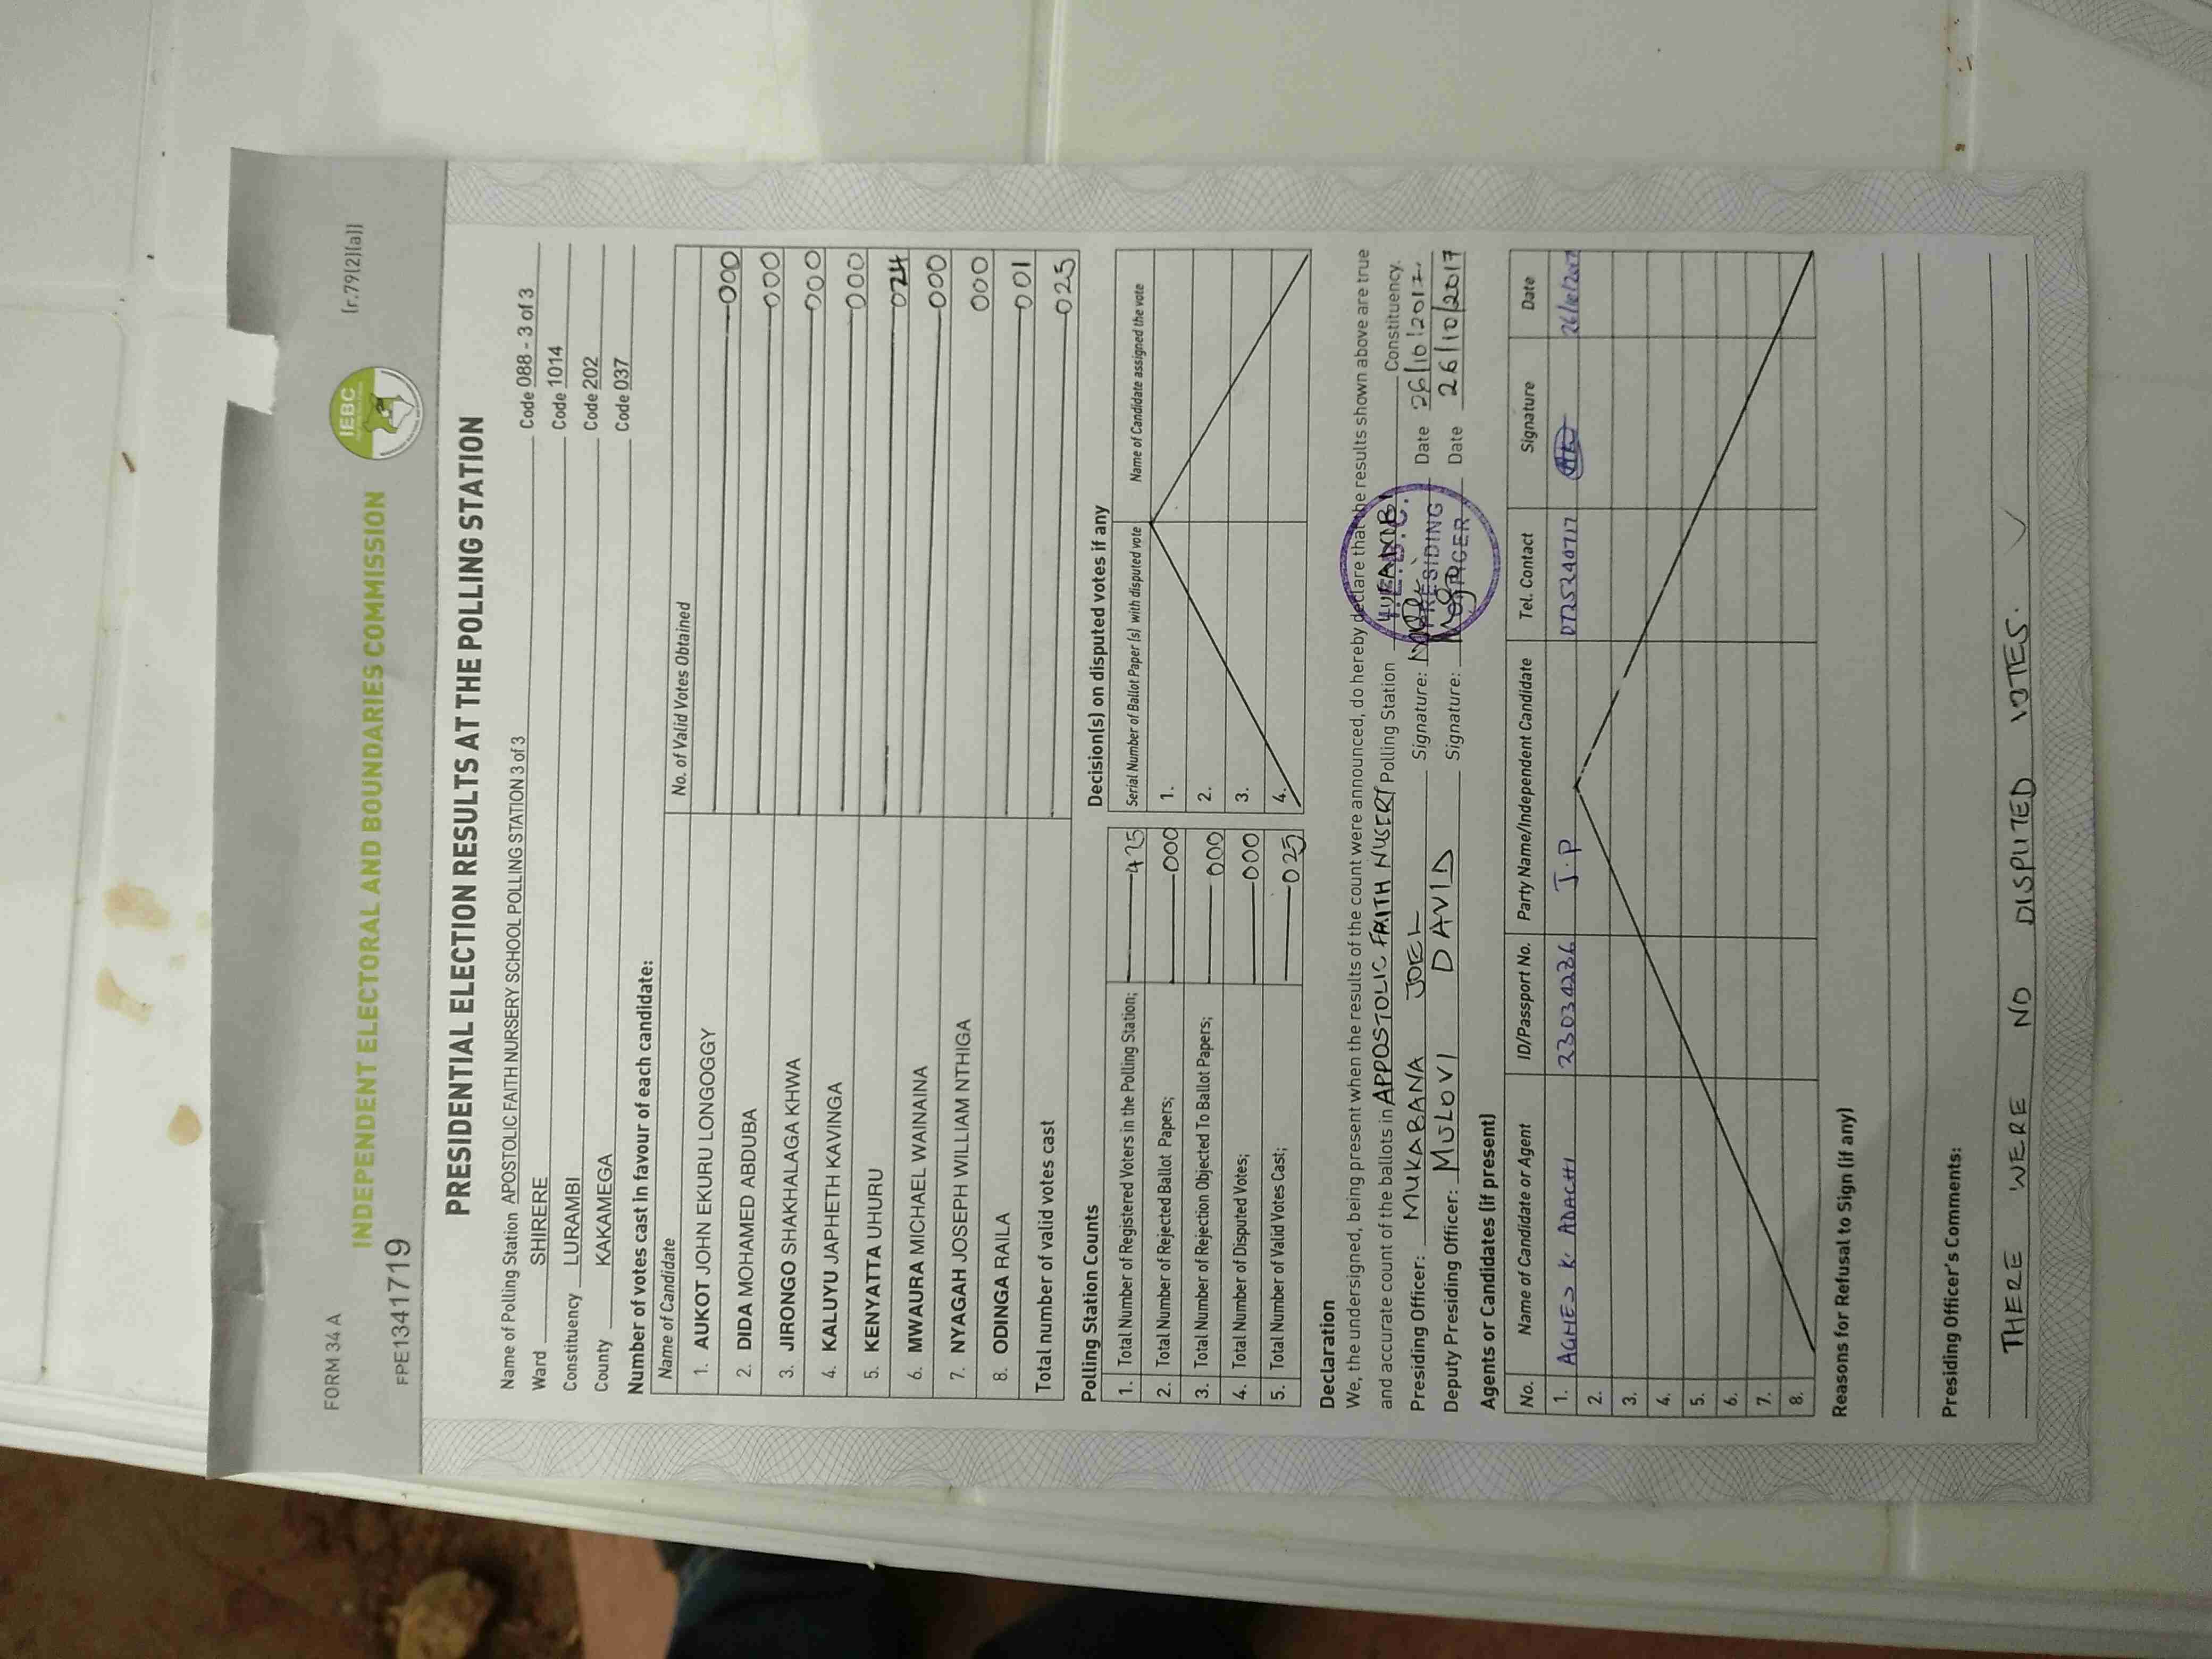 FORM 34 A
[r.79(2)(a)]
INDEPENDENT ELECTORAL AND BOUNDARIES COMMISSION
IEBC
FPE1341719
PRESIDENTIAL ELECTION RESULTS AT THE POLLING STATION
Name of Polling Station APOSTOLIC FAITH NURSERY SCHOOL POLLING STATION 3 of 3 Code 088 - 3 of 3
Ward SHIRERE Code 1014
Constituency LURAMBI Code 202
County KAKAMEGA Code 037
Number of votes cast in favour of each candidate:
Name of Candidate No. of Valid Votes Obtained
1. AUKOT JOHN EKURU LONGOGGY 000
2. DIDA MOHAMED ABDUBA 000
3. JIRONGO SHAKHALAGA KHWA 000
4. KALUYU JAPHETH KAVINGA 000
5. KENYATTA UHURU 024
6. MWAURA MICHAEL WAINAINA 000
7. NYAGAH JOSEPH WILLIAM NTHIGA 000
8. ODINGA RAILA 001
Total number of valid votes cast 025
Polling Station Counts
1. Total Number of Registered Voters in the Polling Station; 425
2. Total Number of Rejected Ballot Papers; 000
3. Total Number of Rejection Objected To Ballot Papers; 000
4. Total Number of Disputed Votes; 000
5. Total Number of Valid Votes Cast; 025
Decision(s) on disputed votes if any
Serial Number of Ballot Paper (s) with disputed vote Name of Candidate assigned the vote
1.
2.
3.
4.
Declaration
We, the undersigned, being present when the results of the count were announced, do hereby declare that the results shown above are true
and accurate count of the ballots in APPOSTOLIC FAITH NUSERY Polling Station LURAMBI Constituency.
Presiding Officer: MUKABANA JOEL Signature: Date 26/10/2017.
Deputy Presiding Officer: MULOVI DAVID Signature: Date 26/10/2017
PRESIDING
Agents or Candidates (if present)
No. Name of Candidate or Agent ID/Passport No. Party Name/Independent Candidate Tel. Contact Signature Date
1. AGNES K. ADACHI 23034236 J.P 0725240717 26/10/2017
2.
3.
4.
5.
6.
7.
8.
Reasons for Refusal to Sign (if any)
Presiding Officer's Comments:
THERE WERE NO DISPUTED VOTES.